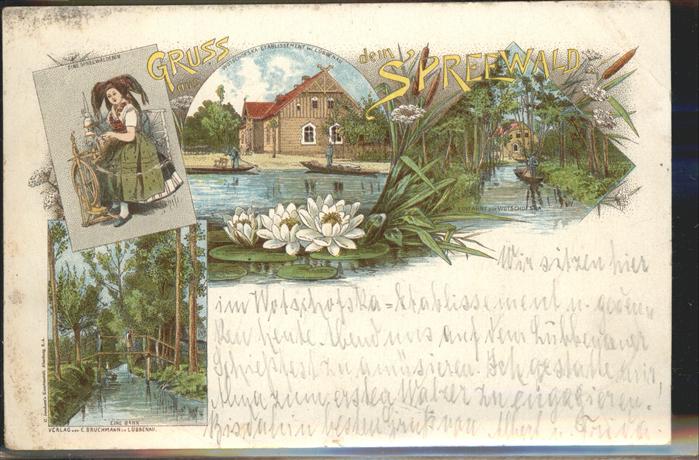 GRUSS
aus
dem
SPREEWALD
EINE SPREEWÄLDERIN
WOTSCHOFSKA ETABLISSEMENT bei LÜBBENAU
WOTSCHOFSKA
EINE BANK
VERLAG von C. BRUCHMANN in LÜBBENAU.
Wir sitzen hier
im Wotschofska=Etablissement u. geden=
ken heute Abend uns auf dem Lübbenauer
Schießfest zu amüsieren. Ich gestatte mir
zum ersten Walzer zu engagieren.
Bis dahin besten Gruß von u. Frida.